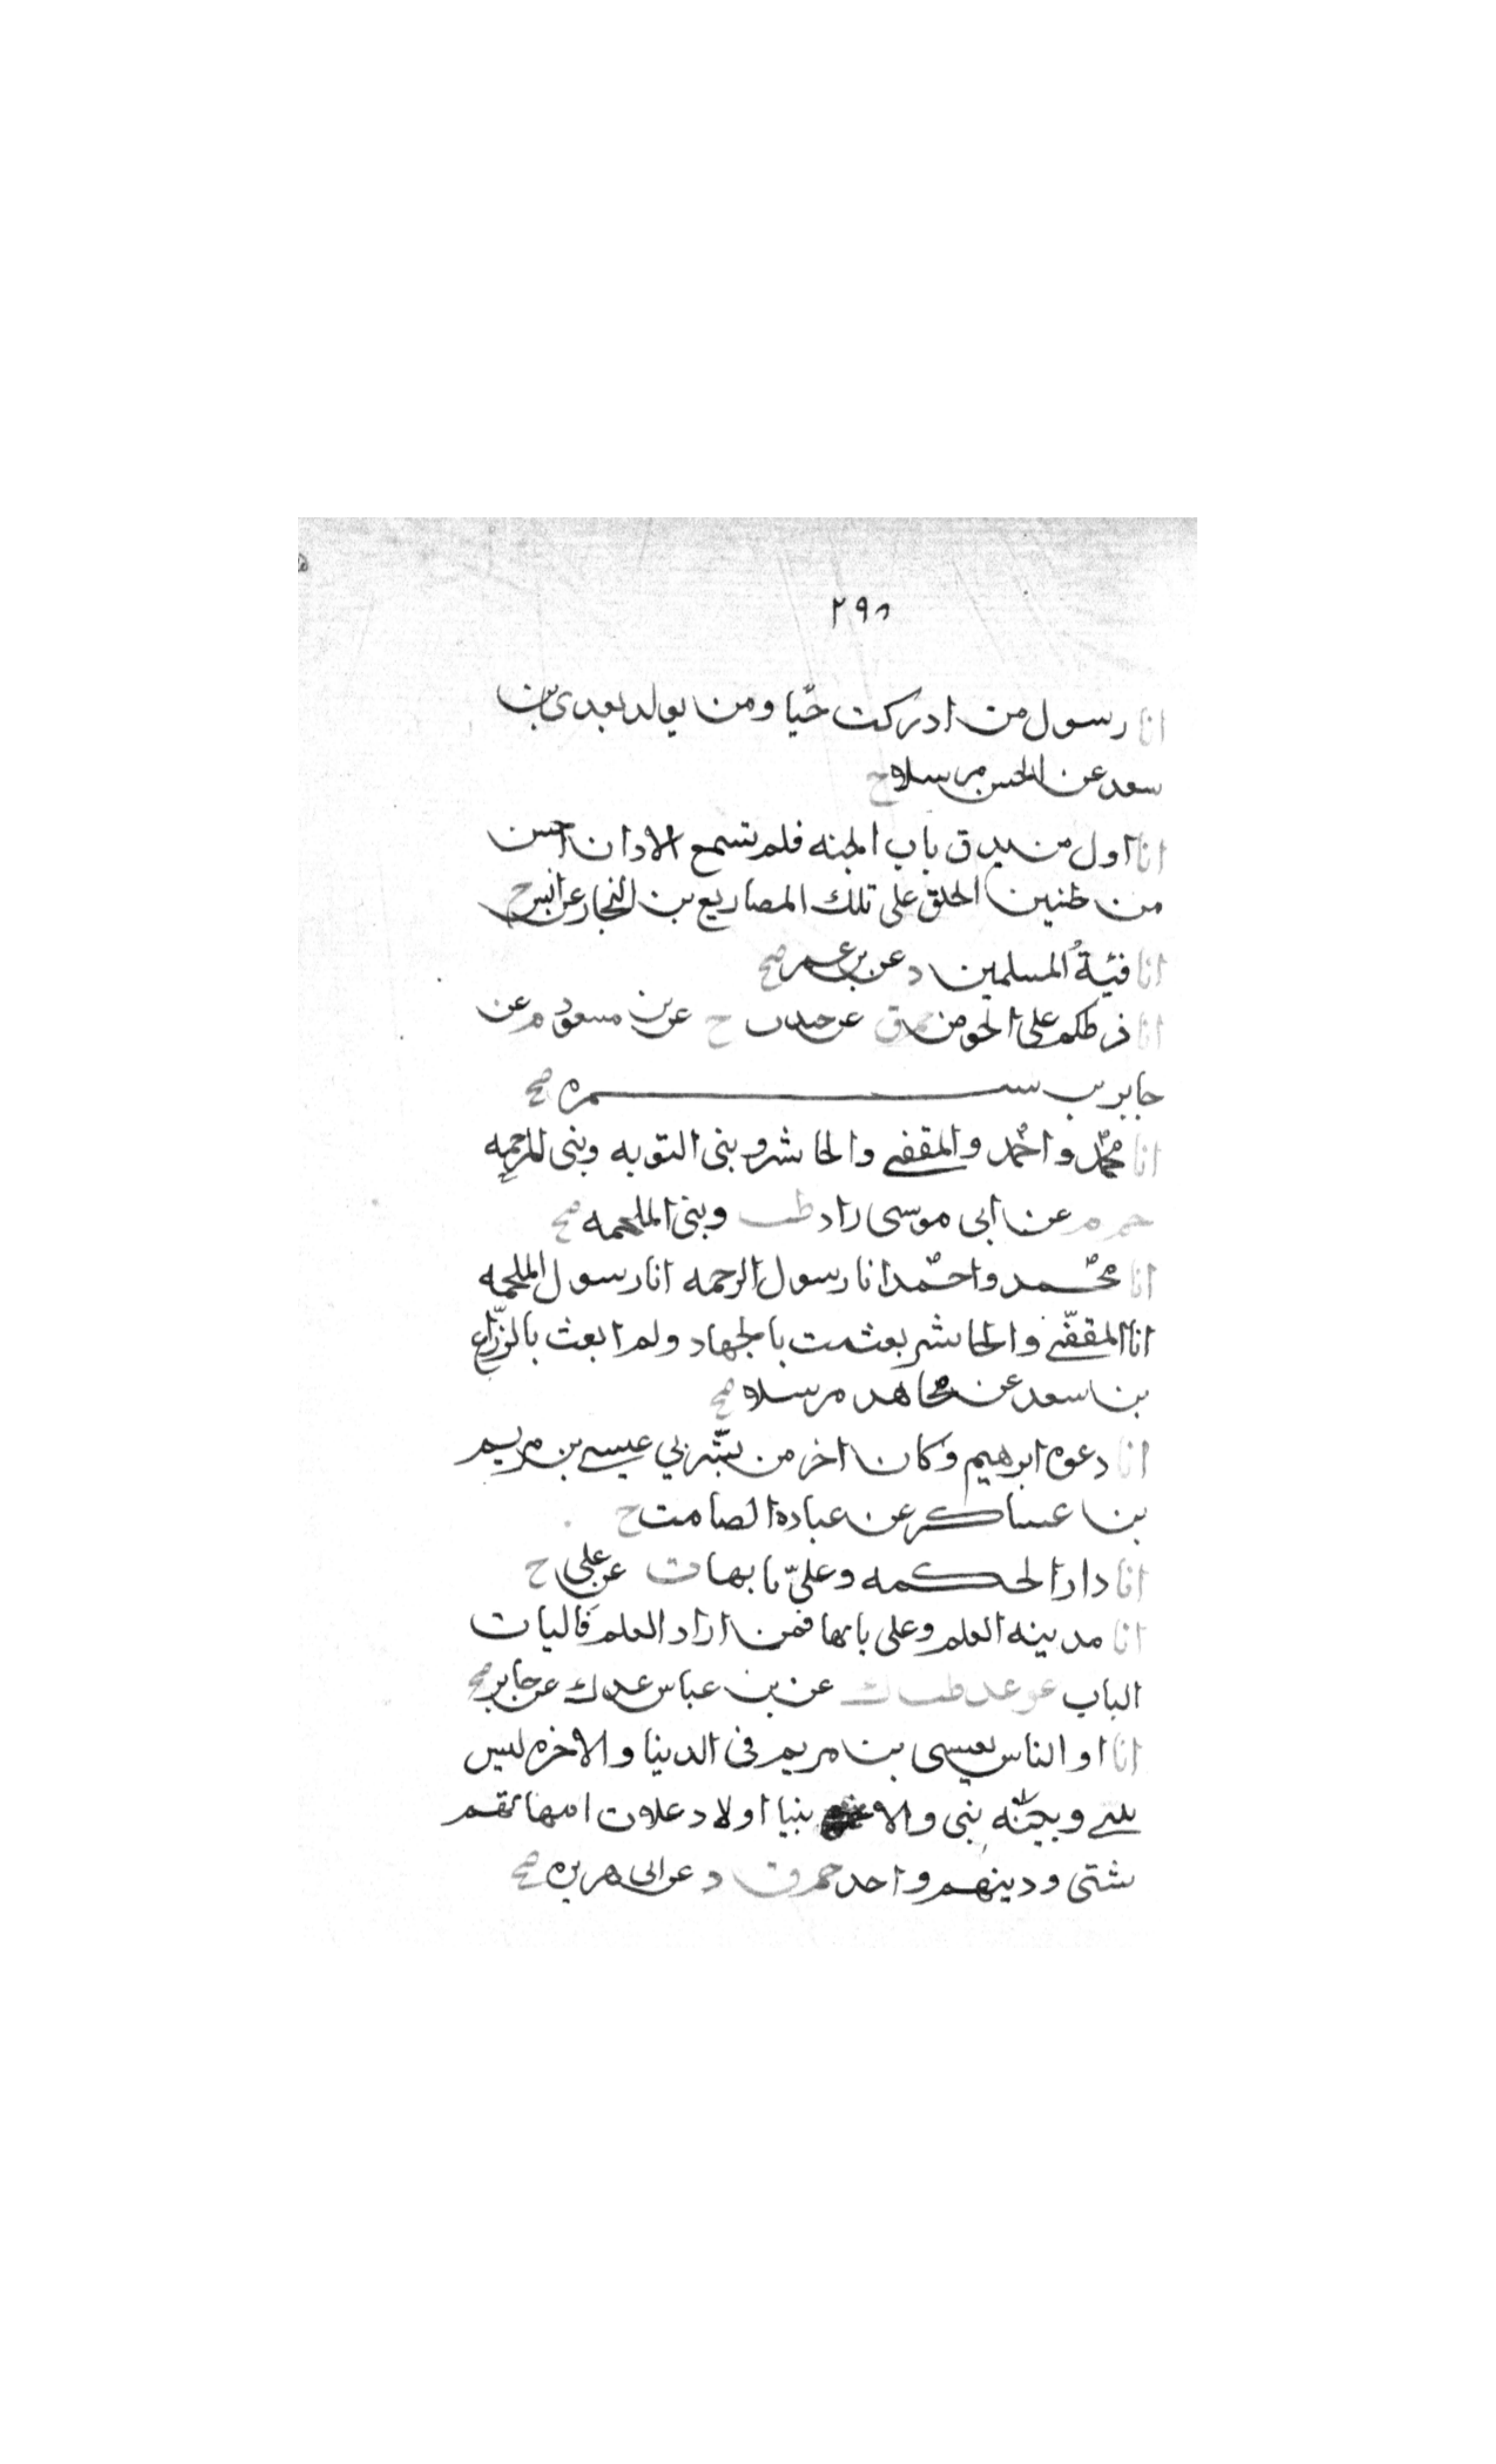 ٢٩٨
انا رسول من ادركت حيّا ومن يولد بعدى بن
سعد عن الحسن مرسلا ح
انا اول من يدق باب الجنه فلم تسمع الاذان احسن
من طنين الحلق على تلك المصاريع بن النجار عن انس ح
انا فئةُ المسلمين د عن بن عمر صح
انا فرطكم على الحوض حم ق عن جندب خ عن بن مسعود م عن
جابر بن سمره صح
انا محمّد واحمد والمقفى والحاشر ونبى التوبه ونبى المرحمه
حم م عن ابى موسى زاد طب ونبى الملحمه صح
انا محمد واحمد انا رسول الرحمه انا رسول الملحمه
انا المقفّى والحاشر بعثت بالجهاد ولم ابعث بالزّراع
بن سعد عن مجاهد مرسلا صح
انا دعوه ابرهيم وكان اخر من بشّر بي عيسى بن مريم
بن عساكر عن عباده الصامت ح
انا دار الحكمه وعلىّ بابها ت عن على ح
انا مدينه العلم وعلى بابها فمن اراد العلم فاليات
الباب عق عد طب ك عن بن عباس عد ك عن جابر صح
انا او الناس بعيسى بن مريم فى الدينا والاخره ليس
بينى وبينه نبى والا نبيا اولاد علات امهاتهم
شتى ودينهم واحد حم ق د عن ابى هريره صح